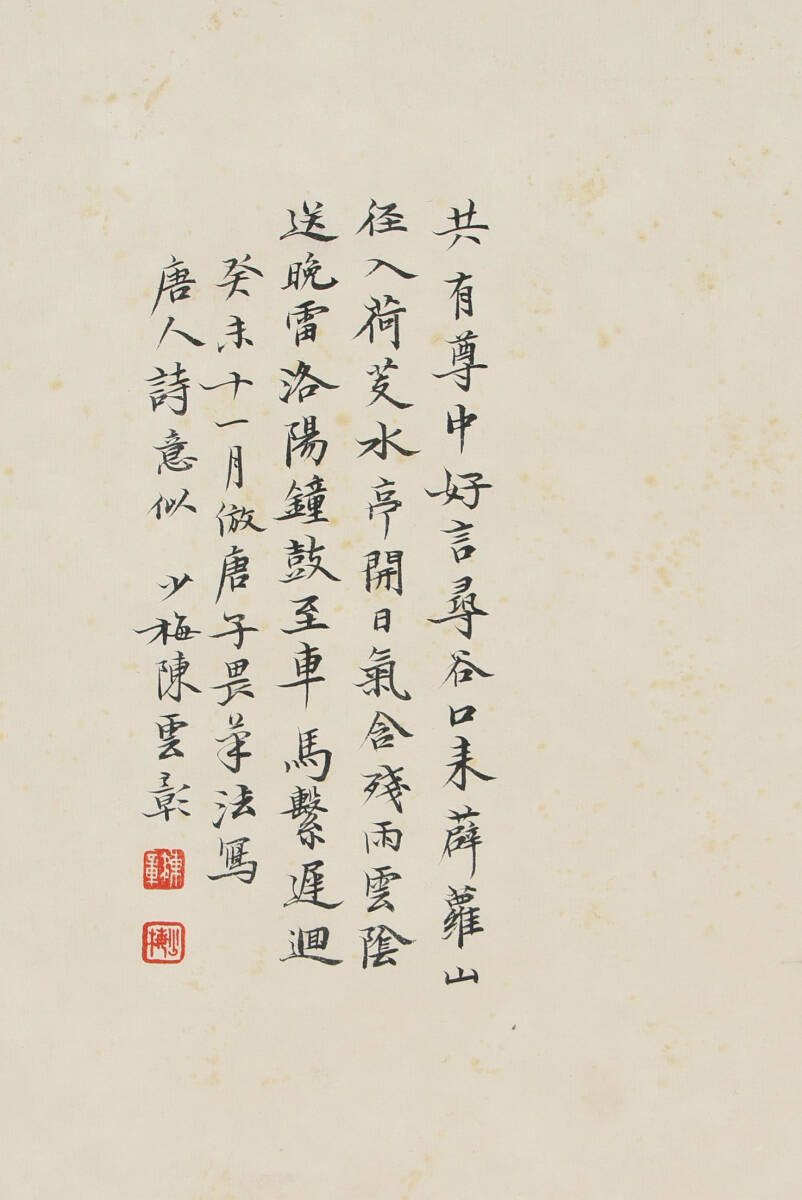 共有尊中好言尋谷口来薜蘿山
径入荷芰水亭開日氣含殘雨雲陰
送晚雷洛陽鐘鼓至車馬繫遲迴
癸未十一月倣唐子畏筆法寫
唐人詩意似 少梅陳雲彰
陳
少梅